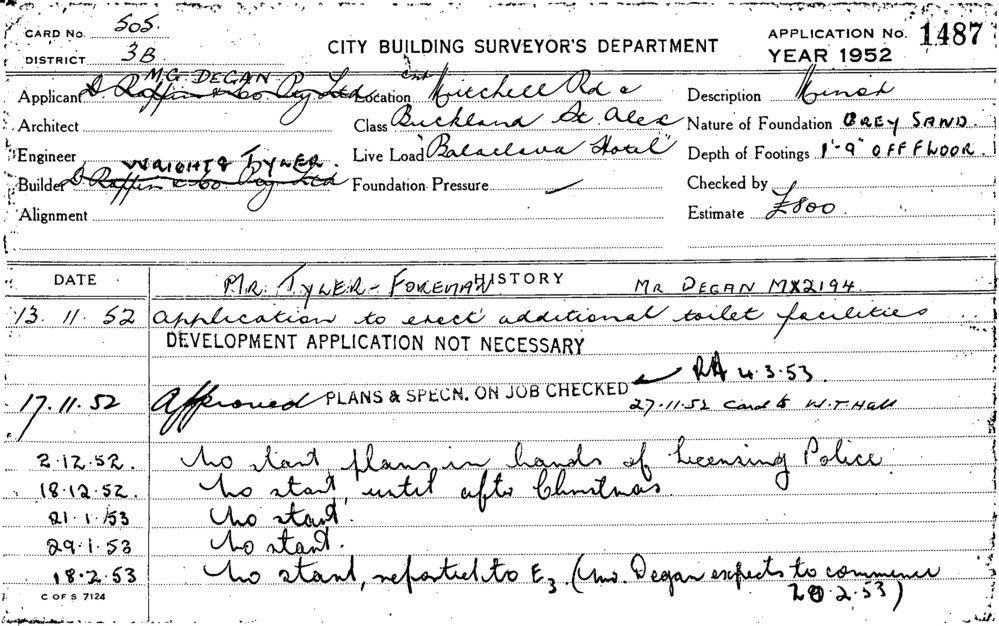 CARD No. 505.
DISTRICT 3B
CITY BUILDING SURVEYOR'S DEPARTMENT
APPLICATION No. 1487
YEAR 1952
M.G. DEGAN
Applicant D. Raffin & Co Pty Ltd
Location Cnr Mitchell Rd &
Description Minor
Architect
Class Buckland St. Alex
Nature of Foundation GREY SAND.
Engineer
Live Load "Balaclava Hotel"
Depth of Footings 1'-9" OFF FLOOR.
WRIGHT & TYLER.
Builder D. Raffin & Co Pty Ltd
Foundation Pressure
Checked by
Alignment
Estimate £800
DATE
HISTORY
MR. TYLER - FOREMAN
MR DEGAN MX2194
13. 11. 52 Application to erect additional toilet facilities
DEVELOPMENT APPLICATION NOT NECESSARY
4.3.53.
17.11.52 Approved PLANS & SPECN. ON JOB CHECKED
27.11.52 Card to W.T. Hall
2.12.52. No start, plans in hands of Licensing Police
18.12.52. No start until after Christmas
21.1.53 No start.
29.1.53 No start.
18.2.53 No start, reported to E3 (Mr. Degan expects to commence
20.2.53)
C OF S 7124